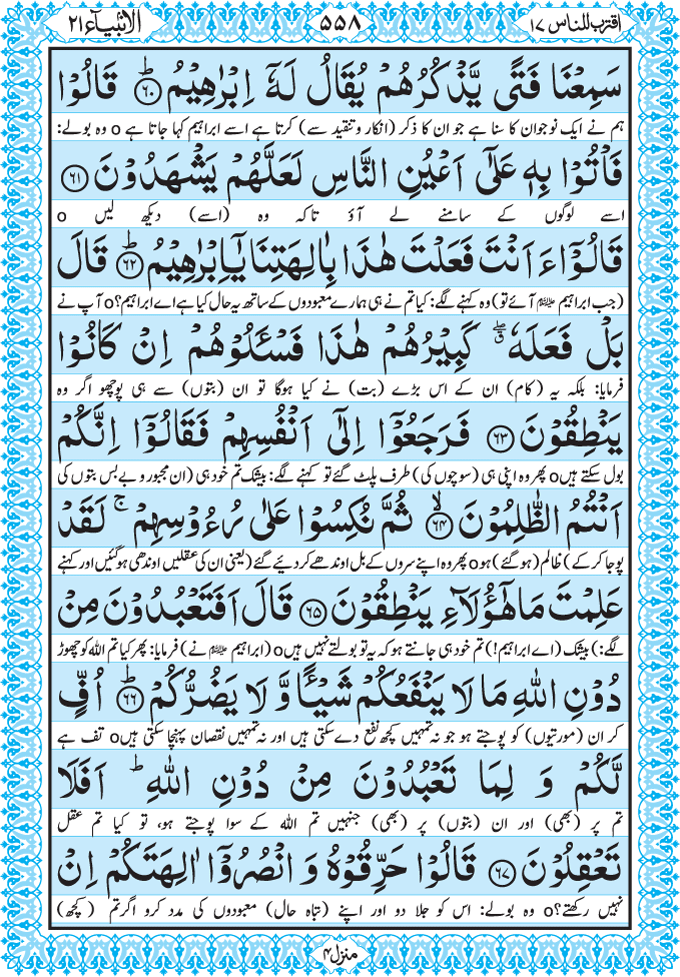 اقترب للناس ۱۷ ۵۵۸ الانبیآء ۲۱
سَمِعْنَا فَتًى يَّذْكُرُهُمْ يُقَالُ لَهٗۤ اِبْرٰهِيْمُ ؕ﴿۶۰﴾ قَالُوْا
ہم نے ایک نوجوان کا سنا ہے جو ان کا ذکر (انکار و تنقید سے) کرتا ہے اسے ابراہیم کہا جاتا ہے o وہ بولے:
فَاْتُوْا بِهٖ عَلٰۤى اَعْيُنِ النَّاسِ لَعَلَّهُمْ يَشْهَدُوْنَ ﴿۶۱﴾
اسے لوگوں کے سامنے لے آؤ تاکہ وہ (اسے) دیکھ لیں o
قَالُوْۤا ءَاَنْتَ فَعَلْتَ هٰذَا بِاٰلِهَتِنَا يٰۤـاِبْرٰهِيْمُ ؕ﴿۶۲﴾ قَالَ
(جب ابراہیم ﷺ آئے تو) وہ کہنے لگے: کیا تم نے ہی ہمارے معبودوں کے ساتھ یہ حال کیا ہے اے ابراہیم؟ o آپ نے
بَلْ فَعَلَهٗ ۖۗ كَبِيْرُهُمْ هٰذَا فَسْـَٔلُوْهُمْ اِنْ كَانُوْا
فرمایا: بلکہ یہ (کام) ان کے اس بڑے (بت) نے کیا ہوگا تو ان (بتوں) سے ہی پوچھو اگر وہ
يَنْطِقُوْنَ ﴿۶۳﴾ فَرَجَعُوْۤا اِلٰۤى اَنْفُسِهِمْ فَقَالُوْۤا اِنَّكُمْ
بول سکتے ہیں o پھر وہ اپنی ہی (سوچوں کی) طرف پلٹ گئے تو کہنے لگے: بیشک تم خود ہی (ان مجبور و بے بس بتوں کی
اَنْتُمُ الظّٰلِمُوْنَ ۙ﴿۶۴﴾ ثُمَّ نُكِسُوْا عَلٰى رُءُوْسِهِمْ ۚ لَقَدْ
پوجا کر کے) ظالم (ہو گئے) ہو o پھر وہ اپنے سروں کے بل اوندھے کر دیئے گئے (یعنی ان کی عقلیں اوندھی ہوگئیں اور کہنے
عَلِمْتَ مَا هٰٓؤُلَآءِ يَنْطِقُوْنَ ﴿۶۵﴾ قَالَ اَفَتَعْبُدُوْنَ مِنْ
لگے:) بیشک (اے ابراہیم!) تم خود ہی جانتے ہو کہ یہ تو بولتے نہیں ہیں o (ابراہیم ﷺ نے) فرمایا: پھر کیا تم اللہ کو چھوڑ
دُوْنِ اللّٰهِ مَا لَا يَنْفَعُكُمْ شَيْـًٔا وَّ لَا يَضُرُّكُمْ ؕ﴿۶۶﴾ اُفٍّ
کر ان (مورتیوں) کو پوجتے ہو جو نہ تمہیں کچھ نفع دے سکتی ہیں اور نہ تمہیں نقصان پہنچا سکتی ہیں o تف ہے
لَّكُمْ وَ لِمَا تَعْبُدُوْنَ مِنْ دُوْنِ اللّٰهِ ؕ اَفَلَا
تم پر (بھی) اور ان (بتوں) پر (بھی) جنہیں تم اللہ کے سوا پوجتے ہو، تو کیا تم عقل
تَعْقِلُوْنَ ﴿۶۷﴾ قَالُوْا حَرِّقُوْهُ وَ انْصُرُوْۤا اٰلِهَتَكُمْ اِنْ
نہیں رکھتے؟ o وہ بولے: اس کو جلا دو اور اپنے (تباہ حال) معبودوں کی مدد کرو اگر تم (کچھ)
منزل ۴